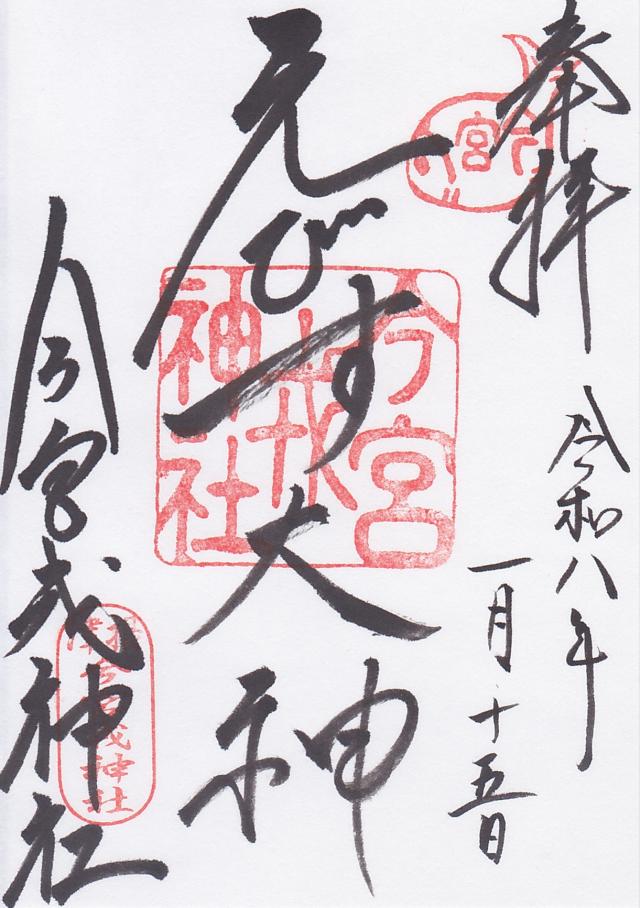 奉拝
令和八年
一月十五日
えびす大神
今宮戎神社
今宮
今宮戎神社